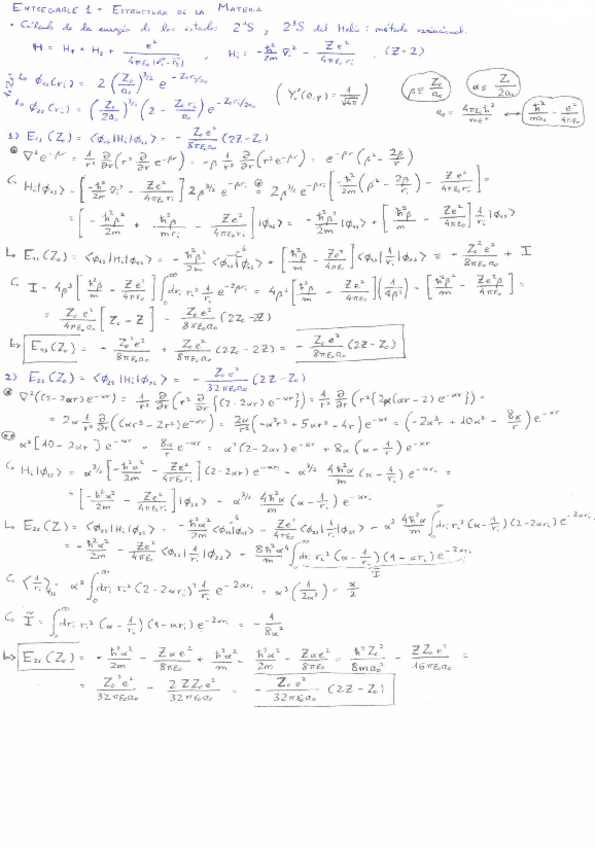 ENTREGABLE 1 - ESTRUCTURA DE LA MATERIA
• Cálculo de la energía de los estados 2¹S, 2³S del Helio: método variacional.
H = H₁ + H₂ + e²/(4πε₀|r⃗₁-r⃗₂|) , Hᵢ = -ħ²/2m ∇ᵢ² - Ze²/(4πε₀rᵢ) , (Z=2)
↳ ϕ₁ₛ(rᵢ) = 2 (Z₀/a₀)^(3/2) e^(-Z₀rᵢ/a₀) (Y₀⁰(θ,φ) = 1/√(4π)) β ≡ Z₀/a₀ α ≡ Z₀/2a₀
↳ ϕ₂ₛ(rᵢ) = (Z₀/2a₀)^(3/2) (2 - Z₀rᵢ/a₀) e^(-Z₀rᵢ/2a₀) a₀ = 4πε₀ħ²/me² ↔ ħ²/ma₀ = e²/4πε₀
1) E₁ₛ(Z₀) = <ϕ₁ₛ|Hᵢ|ϕ₁ₛ> = - Z₀e²/(8πε₀a₀) (2Z-Z₀)
∇²e^(-βr) = 1/r² ∂/∂r (r² ∂/∂r e^(-βr)) = -β 1/r² ∂/∂r (r²e^(-βr)) = e^(-βr) (β² - 2β/r)
Hᵢ|ϕ₁ₛ> = [-ħ²/2m ∇ᵢ² - Ze²/(4πε₀rᵢ)] 2β^(3/2) e^(-βrᵢ) = 2β^(3/2) e^(-βrᵢ) [-ħ²/2m (β² - 2β/rᵢ) - Ze²/(4πε₀rᵢ)] =
= [-ħ²β²/2m + ħ²β/mrᵢ - Ze²/(4πε₀rᵢ)] |ϕ₁ₛ> = -ħ²β²/2m |ϕ₁ₛ> + [ħ²β/m - Ze²/4πε₀] 1/rᵢ |ϕ₁ₛ>
↳ E₁ₛ(Z₀) = <ϕ₁ₛ|Hᵢ|ϕ₁ₛ> = -ħ²β²/2m <ϕ₁ₛ|ϕ₁ₛ> + [ħ²β/m - Ze²/4πε₀] <ϕ₁ₛ|1/rᵢ|ϕ₁ₛ> = -Z₀²e²/(8πε₀a₀) + I
I = 4β³ [ħ²β/m - Ze²/4πε₀] ∫₀^∞ drᵢ rᵢ² 1/rᵢ e^(-2βrᵢ) = 4β³ [ħ²β/m - Ze²/4πε₀] (1/4β²) = [ħ²β²/m - Ze²β/4πε₀] =
= Z₀e²/(4πε₀a₀) [Z₀ - Z] = Z₀e²/(8πε₀a₀) (2Z₀-2Z)
↳ E₁ₛ(Z₀) = - Z₀²e²/(8πε₀a₀) + Z₀e²/(8πε₀a₀) (2Z₀-2Z) = - Z₀e²/(8πε₀a₀) (2Z-Z₀)
2) E₂ₛ(Z₀) = <ϕ₂ₛ|Hᵢ|ϕ₂ₛ> = - Z₀e²/(32πε₀a₀) (2Z-Z₀)
∇²((2-2αr)e^(-αr)) = 1/r² ∂/∂r (r² ∂/∂r {(2-2αr)e^(-αr)}) = 1/r² ∂/∂r (r² {2α(αr-2)e^(-αr)}) =
= 2α 1/r² ∂/∂r ((αr³-2r²)e^(-αr)) = 2α/r² (-α²r³+5αr²-4r)e^(-αr) = (-2α³r+10α²-8α/r)e^(-αr)
α²[10-2αr]e^(-αr) - 8α/r e^(-αr) = α²(2-2αr)e^(-αr) + 8α(α-1/r)e^(-αr)
Hᵢ|ϕ₂ₛ> = α^(3/2) [-ħ²α²/2m - Ze²/(4πε₀rᵢ)] (2-2αrᵢ)e^(-αrᵢ) - α^(3/2) 4ħ²α/m (α-1/rᵢ)e^(-αrᵢ) =
= [-ħ²α²/2m - Ze²/(4πε₀rᵢ)] |ϕ₂ₛ> - α^(3/2) 4ħ²α/m (α-1/rᵢ)e^(-αrᵢ)
↳ E₂ₛ(Z) = <ϕ₂ₛ|Hᵢ|ϕ₂ₛ> = -ħ²α²/2m <ϕ₂ₛ|ϕ₂ₛ> - Ze²/4πε₀ <ϕ₂ₛ|1/rᵢ|ϕ₂ₛ> - α³ 4ħ²α/m ∫₀^∞ drᵢ rᵢ² (α-1/rᵢ)(2-2αrᵢ)e^(-2αrᵢ)
= -ħ²α²/2m - Ze²/4πε₀ <ϕ₂ₛ|1/rᵢ|ϕ₂ₛ> - 8ħ²α⁴/m ∫₀^∞ drᵢ rᵢ² (α-1/rᵢ)(1-αrᵢ)e^(-2αrᵢ) Ĩ
<1/rᵢ>₂ₛ = α³ ∫₀^∞ drᵢ rᵢ² (2-2αrᵢ)² 1/rᵢ e^(-2αrᵢ) = α³ (1/2α²) = α/2
Ĩ = ∫₀^∞ drᵢ rᵢ² (α-1/rᵢ)(1-αrᵢ)e^(-2αrᵢ) = - 1/8α²
↳ E₂ₛ(Z₀) = -ħ²α²/2m - Zαe²/8πε₀ + ħ²α²/m = ħ²α²/2m - Zαe²/8πε₀ = ħ²Z₀²/8ma₀² - ZZ₀e²/(16πε₀a₀) =
= Z₀²e²/(32πε₀a₀) - 2ZZ₀e²/(32πε₀a₀) = - Z₀e²/(32πε₀a₀) (2Z-Z₀)